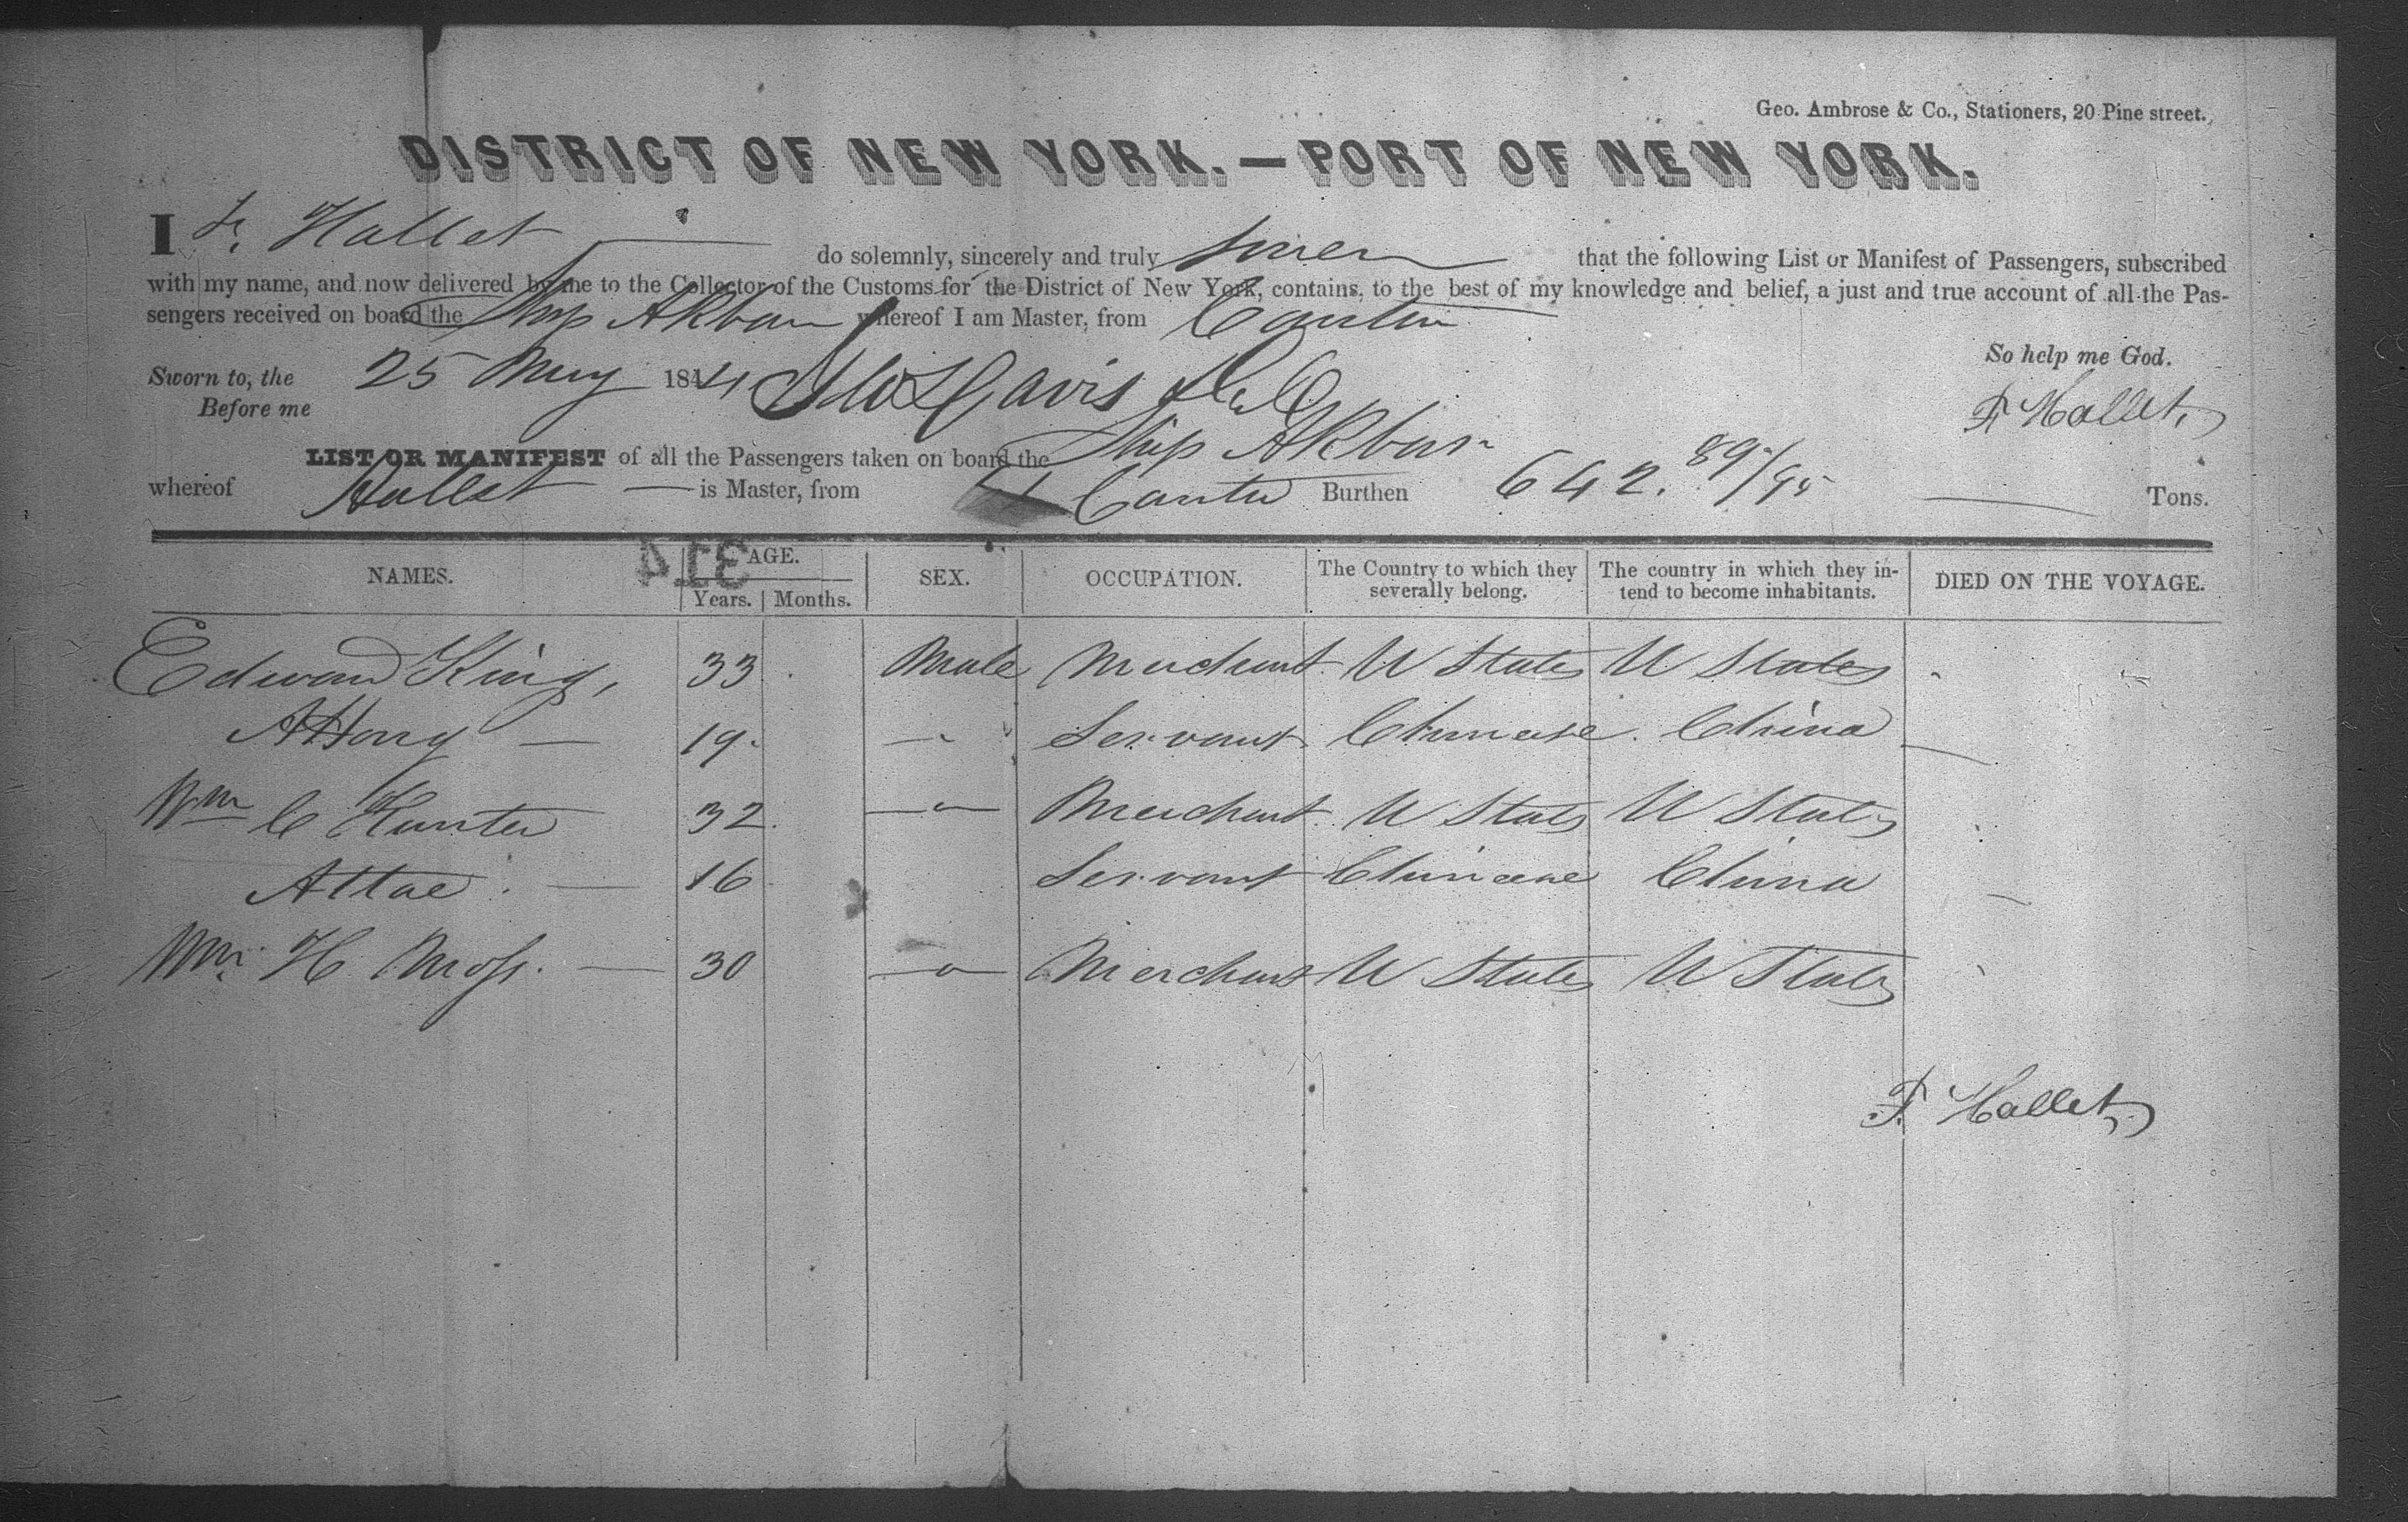 Geo. Ambrose & Co., Stationers, 20 Pine street.
DISTRICT OF NEW YORK.—PORT OF NEW YORK.
I F. Hallet do solemnly, sincerely and truly swear that the following List or Manifest of Passengers, subscribed
with my name, and now delivered by me to the Collector of the Customs for the District of New York, contains, to the best of my knowledge and belief, a just and true account of all the Pas-
sengers received on board the Ship Akbar whereof I am Master, from Canton
So help me God.
Sworn to, the 25 May 1844
Before me Davis D. C.
F Hallet
LIST OR MANIFEST of all the Passengers taken on board the Ship Akbar
whereof Hallet is Master, from Canton Burthen 642. 89/95 Tons.
314
NAMES. AGE. Years. Months. SEX. OCCUPATION. The Country to which they severally belong. The country in which they in-tend to become inhabitants. DIED ON THE VOYAGE.
Edward King, 33 Male Merchant U States U States
AHong — 19. — Servant Chinese. China
Wm C Hunter 32 —"— Merchant U States U States
Attae — 16 Servant Chinese China
Wm H Moss — 30 —"— Merchant U States U States
F. Hallet